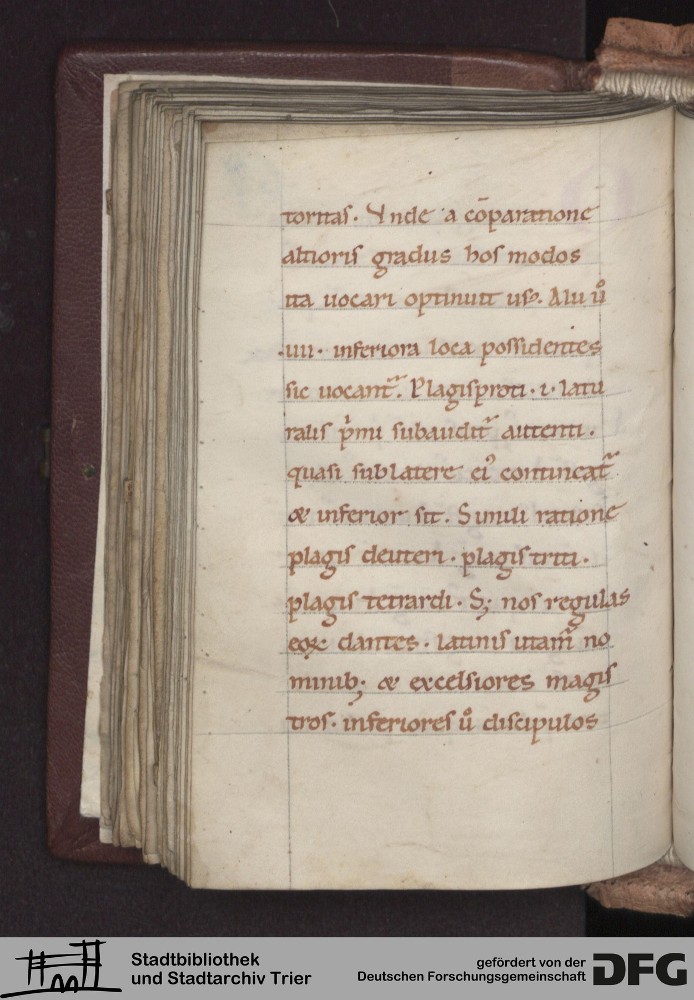 toritas. Vnde a cōparatione
altioris gradus hos modos
ita uocari optinuit us᷒. Alii ū̊
.iiii. inferiora loca possidentes
sic uocant᷑. Plagisproti .i. latę
ralis pⁱmi subaudit᷑ autenti.
quasi sublatere eiꝰ contineat᷑
& inferior sit. Simili ratione
plagis deuteri. plagis triti.
plagis tetrardi. S; nos regulas
eoꝝ dantes. latinis utam̄ no
minib; & excelsiores magis
tros. inferiores ū̊ discipulos
Stadtbibliothek
und Stadtarchiv Trier
gefördert von der
Deutschen Forschungsgemeinschaft
DFG